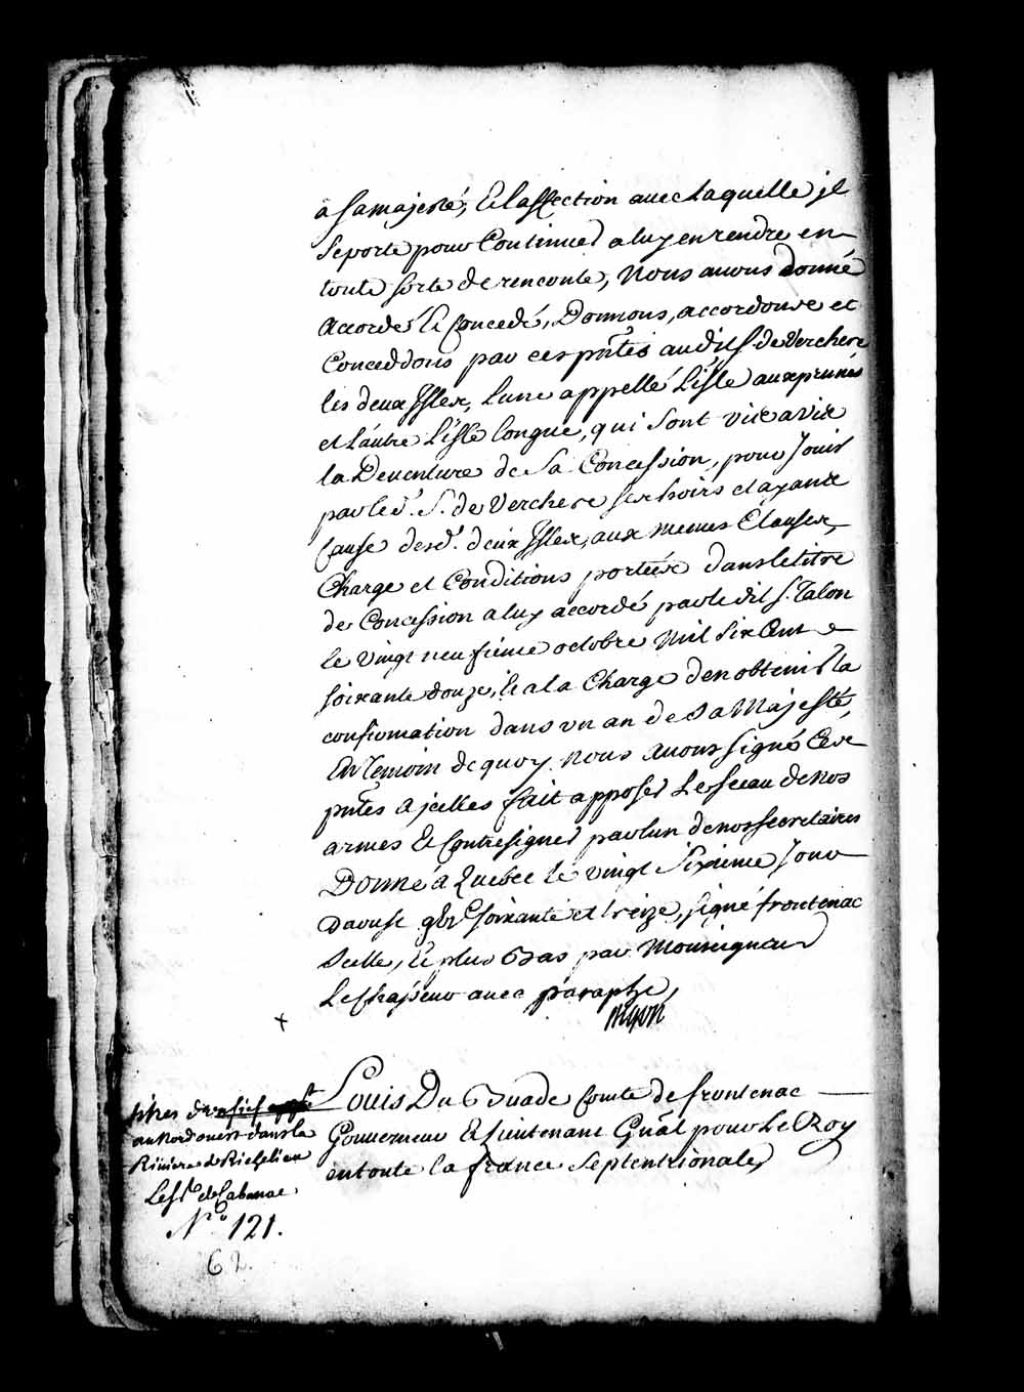 a sa majesté, Et laffection avec laquelle jl
Se porte pour Continuer a luy en rendre en
toute sorte de rencontre, Nous avons donné
accordé et Concedé, Donnons, accordons et
Conceddons par ces pntes audit S. de Verchere
les deux Isles, lune appellé Lisle aux prunes
et L'autre L'isle longue, qui sont vis a vis
la Deventure de Sa Concession, pour Jouir
par led. S. de Verchere ses hoirs et ayans
Cause desd. deux Isles, aux memes Clauses,
Charge et Conditions portées dans le titre
de Concession a luy accordé par ledit S. Talon
le vingt neufieme octobre Mil Six Cent
soixante douze, et a la Charge den obtenir la
confirmation dans vn an de Sa Majesté,
En temoin de quoy nous avons signé Ces
pntes a jcelles fait apposer Le sceau de nos
armes Et Contresigner par lun de nos secretaires
Donné a Quebec le vingt Sixieme Jour
Daoust gbic soixante et treize, signé frontenac
Scellé, et plus Bas par Monseigneur
Le Chasseur avec paraphe,
Begon
+
Louis Du Buade Comte de frontenac
Gouverneur Et Lieutenant Gnâl pour Le Roy
en toute la france Septentrionale
titres du fief
au Nord ouest dans la
Riviere de Richelieu
Le Sr. de Cabanac
No. 121.
62.